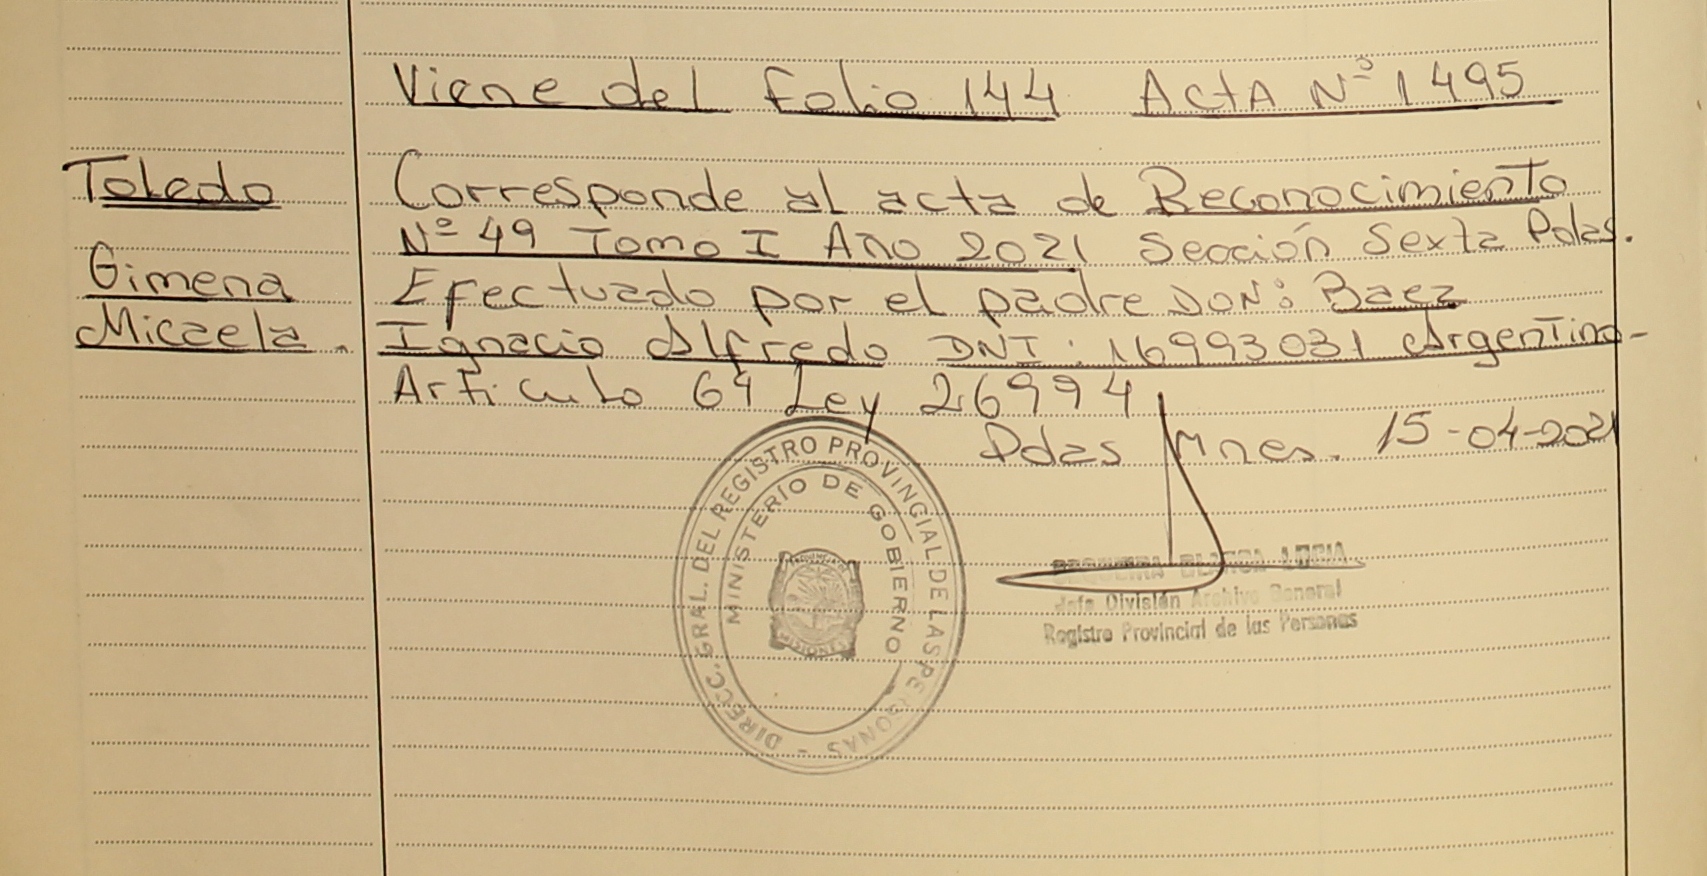 Viene del Folio 144 Acta Nº 1495
Toledo
Gimena
Micaela.
Corresponde al acta de Reconocimiento
Nº 49 Tomo I Año 2021 Sección Sexta Pdas.
Efectuado por el padre DON: Baez
Ignacio Alfredo DNI: 16993031 Argentino-
Articulo 64 Ley 26994
Pdas Mnes. 15-04-2021
DIRECC. GRAL. DEL REGISTRO PROVINCIAL DE LAS PERSONAS -
MINISTERIO DE GOBIERNO
BLANCA LUCIA
Jefa División Archivo General
Registro Provincial de las Personas